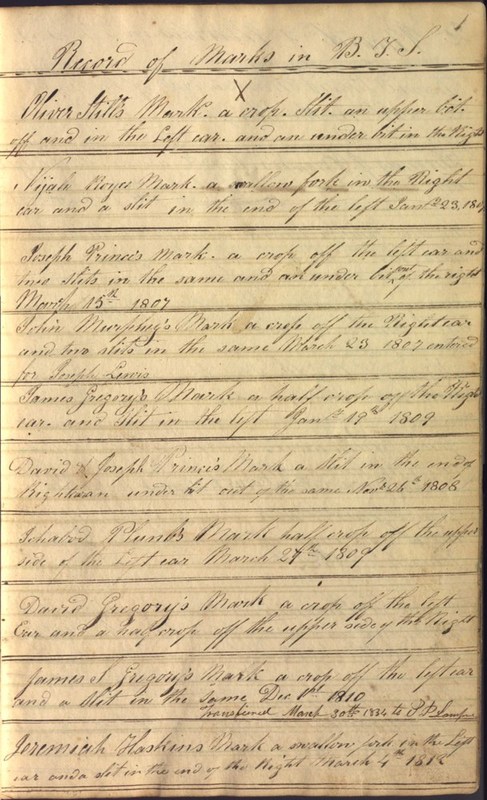 1
Record of Marks in B. T. S.
X
Oliver Stills Mark. a crop. Slit. an upper bit
off and in the Left ear. and an under bit in the Right
Nijah Royce Mark. a swallow fork in the Right
ear and a slit in the end of the left Janry 23, 1807
Joseph Princis Mark. a crop off the left ear and
two slits in the same and an under bit out of the right
March 15th 1807
John Murphey's Mark a crop off the Right ear
and two slits in the same March 23 1807 entered
for Joseph Lewis
James Gregory's Mark a half crop off the Right
ear. and slit in the left Janry 19th 1809
David & Joseph Princis Mark a slit in the end of
Right an under bit out of the same Novr 26th 1808
Ichabod Plumb's Mark half crop off the upper
side of the Left ear March 27th 1809
David Gregory's Mark a crop off the left
Ear and a half crop off the upper side of the Right
James S Gregory's Mark a crop off the left ear
and a slit in the same Dec 1st 1810
Transferred March 30th 1834 to
Jeremiah Haskins Mark a swallow fork in the Left
ear and a slit in the end of the Right March 4th 1812